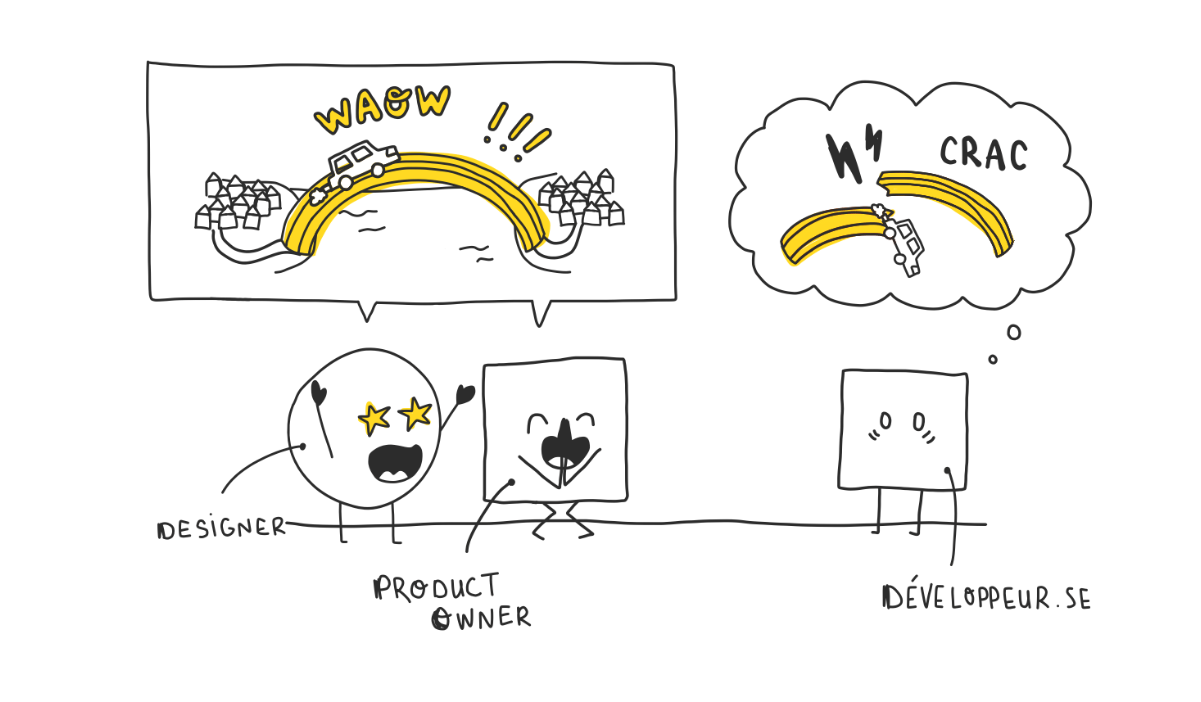 WAOW !!!
CRAC
DESIGNER
PRODUCT
OWNER
DÉVELOPPEUR.SE